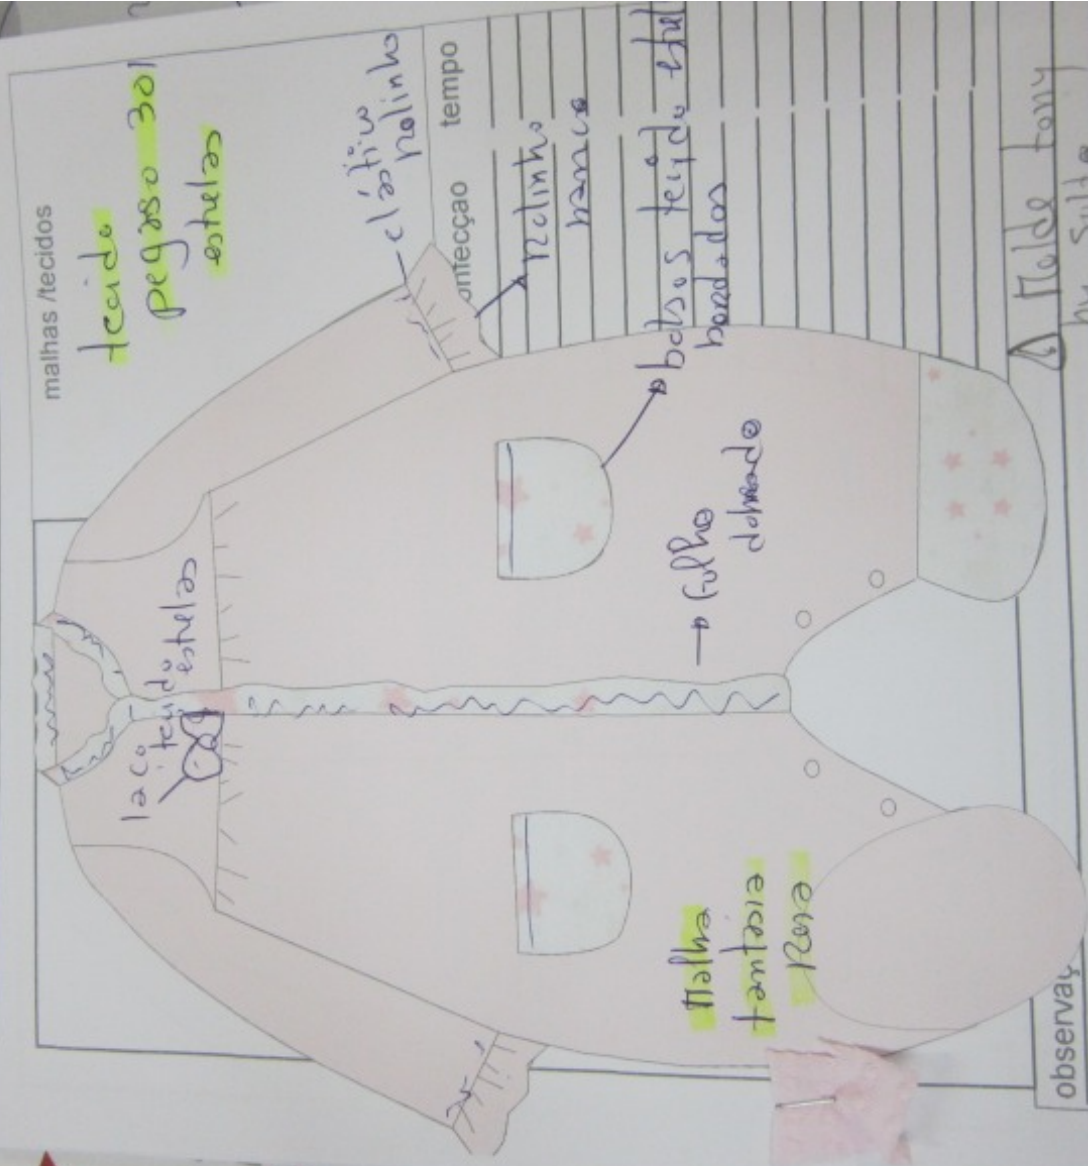 malhas /tecidos
tecido
pegaso 301
estrelas
elástico
rolinho
onfecçao tempo
rolinho
branco
bolsos tecido
bordados
laço
tecido
estrelas
→ folho
dobrado
Malha
fantasia
Rosa
observaç
Molde tony